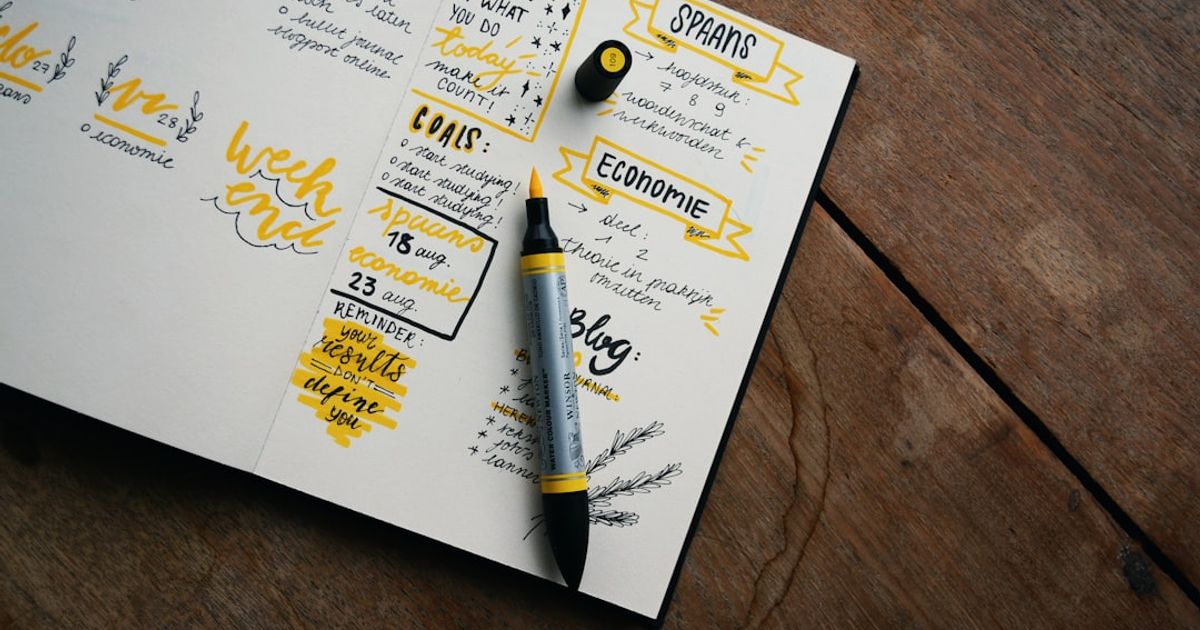 laten
o bullet journal
blogpost online
do 27
vr 28
o economie
week
end
WHAT
YOU DO
today
make it
COUNT!
GOALS:
o start studying!
o start studying!
o start studying!
spaans
18 aug.
economie
23 aug.
REMINDER:
your
results
DON'T
define
you
SPAANS
→ hoofdstuk:
7 8 9
woordenschat &
werkwoorden
ECONOMIE
→ deel:
1 2
theorie in praktijk
omzetten
Blog:
109
WATER COLOUR MARKER
WINSOR